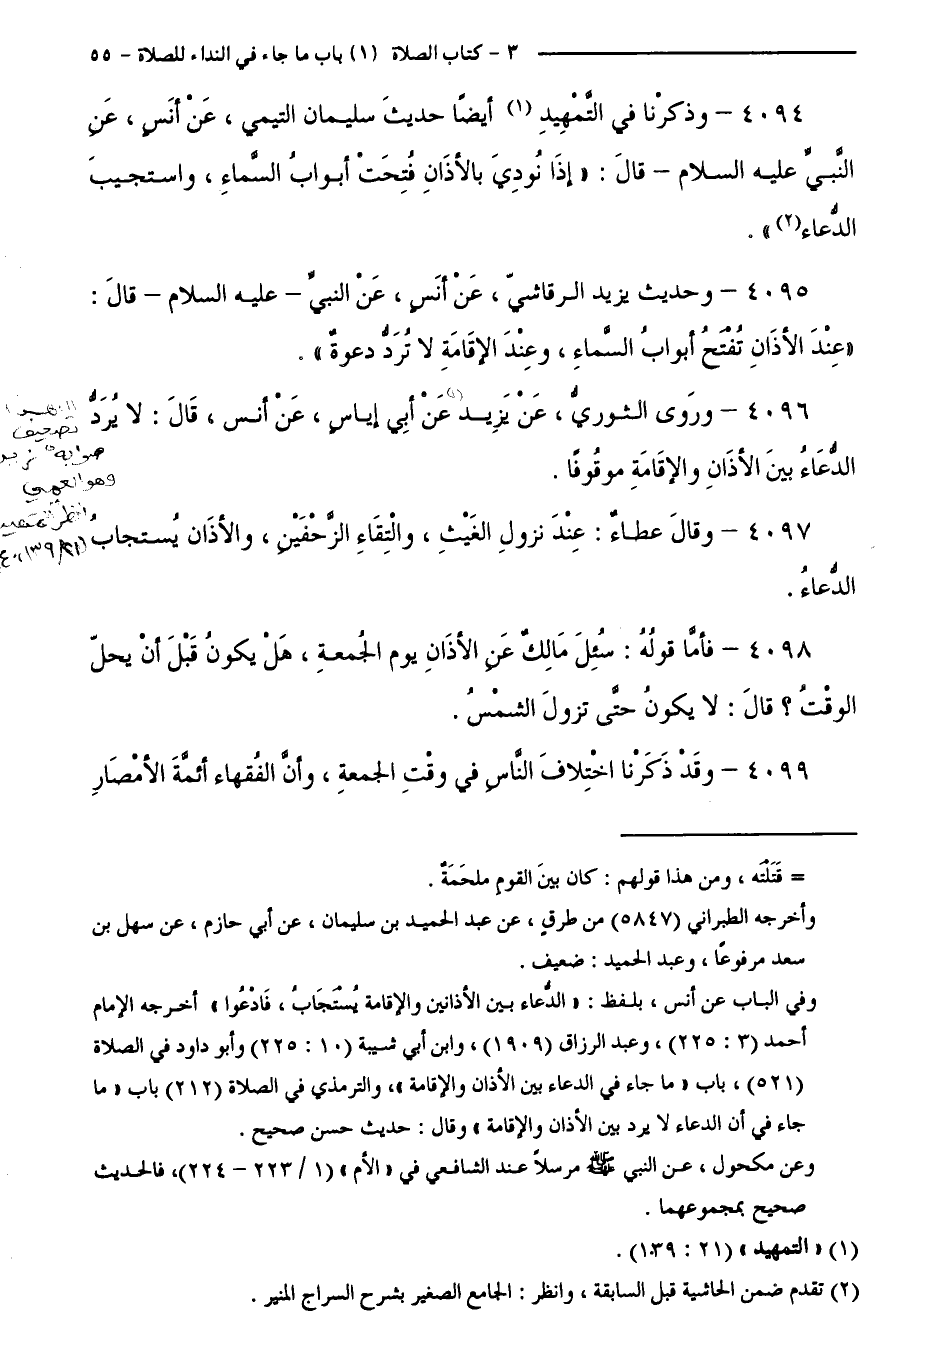 ٣ - كتاب الصلاة (١) باب ما جاء في النداء للصلاة - ٥٥
٤٠٩٤ - وذكرْنا في التَّمْهِيدِ (١) أيضًا حديثَ سليمان التيمي ، عَنْ أنَسٍ ، عَنِ
النَّبيِّ عليه السلام - قالَ : « إذَا نُودِيَ بالأذَانِ فُتحَتْ أبوابُ السَّماءِ ، واستجيبَ
الدُّعاء(٢)» .
٤٠٩٥ - وحديث يزيد الرقاشيّ ، عَنْ أنَسٍ ، عَنْ النبيِّ - عليه السلام - قالَ :
«عِنْدَ الأذَانِ تُفْتَحُ أبوابُ السَّماءِ ، وعِنْدَ الإقَامَةِ لا تُرَدُّ دعوةٌ» .
٤٠٩٦ - ورَوى الثوريُّ ، عَنْ يَزِيد (١) عَنْ أبِي إياسٍ ، عَنْ أنس ، قَالَ : لا يُرَدُّ
الدُّعَاءُ بينَ الأذَانِ والإقَامَةِ موقُوفًا .
تصحيف
صوابه
وهو العمي
انظر التمهيد
٤٠٩٧ - وقالَ عطاءٌ : عِنْدَ نزولِ الغَيْثِ ، والْتِقَاءِ الزَّحْفَيْنِ ، والأذَان يُستجابُ
الدُّعاءُ .
٤٠٩٨ - فأمَّا قولُهُ : سُئِلَ مَالِكٌ عَنِ الأذَانِ يوم الجُمعةِ ، هَلْ يكونُ قَبْلَ أنْ يحلّ
الوقْتُ ؟ قالَ : لا يكونُ حتَّى تزولَ الشمْسُ .
٤٠٩٩ - وقَدْ ذَكَرْنا اخْتِلافَ النَّاسِ في وقْتِ الجمعةِ ، وأنَّ الفُقهاء أئمَّةَ الأمْصَارِ
= قَتَلْتَه ، ومن هذا قولهم : كان بينَ القومِ ملحَمَةٌ .
وأخرجه الطبراني (٥٨٤٧) من طرقٍ ، عن عبد الحميد بن سليمان ، عن أبي حازم ، عن سهل بن
سعد مرفوعًا ، وعبد الحميد : ضعيف .
وفي الباب عن أنس ، بلفظ : « الدُّعاء بين الأذانين والإقامة يُسْتَجَابُ ، فَادْعُوا » أخرجه الإمام
أحمد (٣ : ٢٢٥) ، وعبد الرزاق (١٩٠٩) ، وابن أبي شيبة (١٠ : ٢٢٥) وأبو داود في الصلاة
(٥٢١) ، باب « ما جاء في الدعاء بين الأذان والإقامة »، والترمذي في الصلاة (٢١٢) باب « ما
جاء في أن الدعاء لا يرد بين الأذان والإقامة » وقال : حديث حسن صحيح .
وعن مكحول ، عن النبي ﷺ مرسلاً عند الشافعي في « الأم » (١ / ٢٢٣ - ٢٢٤)، فالحديث
صحيح بمجموعهما .
(١) « التمهيد » (٢١ : ١٣٩) .
(٢) تقدم ضمن الحاشية قبل السابقة ، وانظر : الجامع الصغير بشرح السراج المنير .